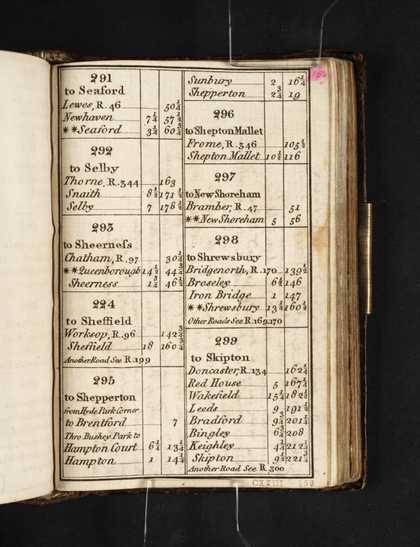 291
to Seaford
Lewes, R.46 50¼
Newhaven 7¼ 57½
**Seaford 3¼ 60¾
292
to Selby
Thorne, R.344 163
Snaith 8½ 171½
Selby 7 178½
293
to Sheerness
Chatham, R.97 30¼
**Queenborough 14½ 44¾
Sheerness 1½ 46¼
224
to Sheffield
Worksop, R.96 142¾
Sheffield 18 160¾
Another Road See R.299
295
to Shepperton
from Hyde Park Corner
to Brentford 7
Thro Bushey Park to
Hampton Court 6¼ 13¼
Hampton 1 14¼
Sunbury 2 16¼
Shepperton 2¾ 19
296
to Shepton Mallet
Frome, R.346 105½
Shepton Mallet 10½ 116
297
to New Shoreham
Bramber, R.47 51
**New Shoreham 5 56
298
to Shrewsbury
Bridgenorth, R.170 139½
Broseley 6½ 146
Iron Bridge 1 147
**Shrewsbury 13½ 160½
Other Roads See R.169,170
299
to Skipton
Doncaster, R.134 162¼
Red House 5 167¼
Wakefield 15¼ 182½
Leeds 9 191½
Bradford 9¾ 201¼
Bingley 6¾ 208
Keighley 4½ 212½
Skipton 9¼ 221¾
Another Road See R.300